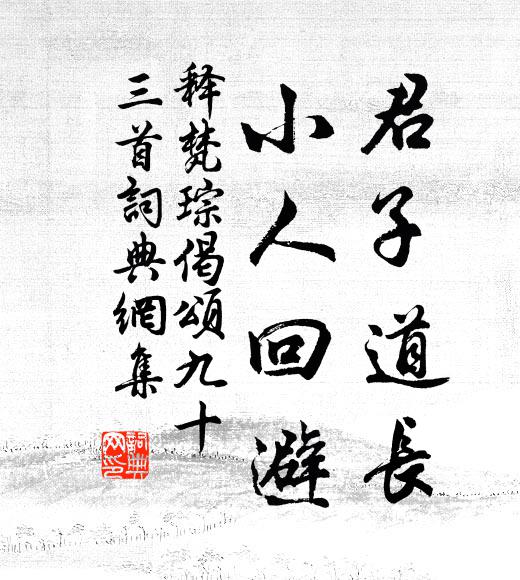 君子道長
小人回避
释梵琮偈頌九十
三首詞典網集
詞典网印